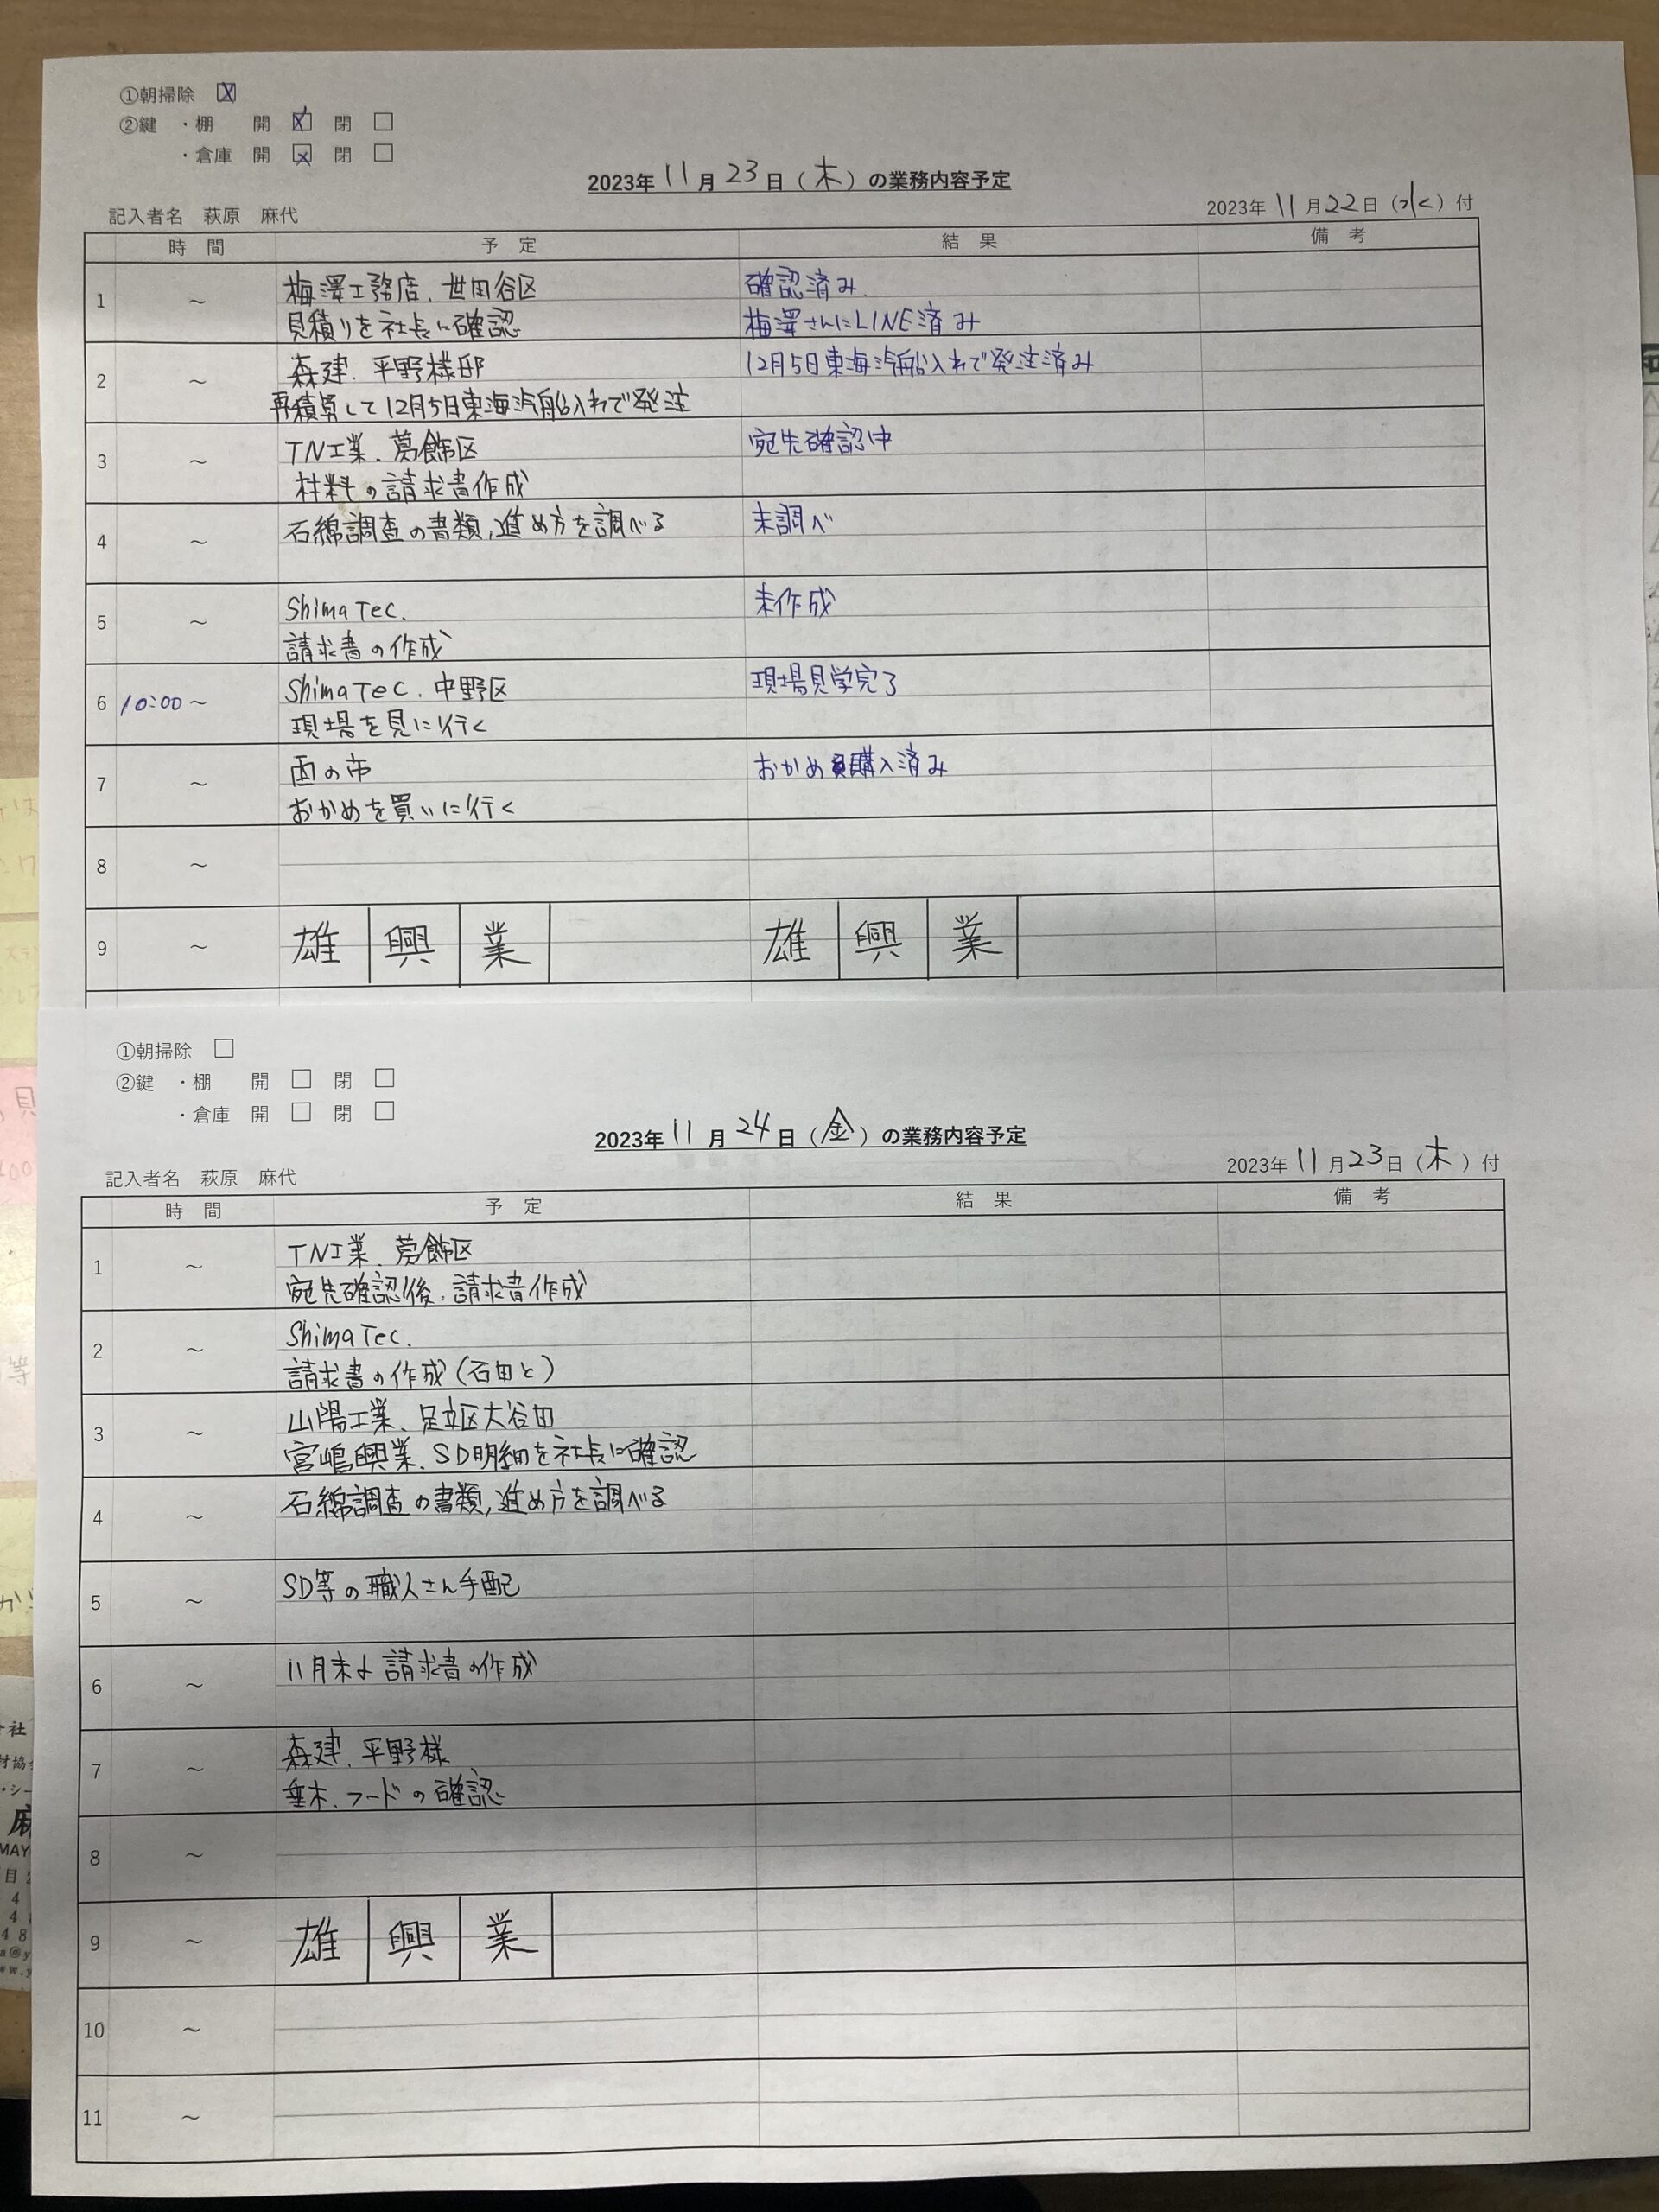 ①朝掃除 ☒
②鍵 ・棚 開 ☒ 閉 □
・倉庫 開 ☒ 閉 □
2023年 11月 23日（木）の業務内容予定
記入者名 萩原 麻代
2023年 11月22日（水）付
時 間 予 定 結 果 備 考
1 ～ 梅澤工務店、世田谷区 確認済み
見積りを社長に確認 梅澤さんにLINE済み
2 ～ 森建、平野様邸 12月5日東海汽船入れで発注済み
再積算して12月5日東海汽船入れで発注
3 ～ TN工業、葛飾区 宛先確認中
材料の請求書作成
4 ～ 石綿調査の書類、進め方を調べる 未調べ
5 ～ Shima Tec. 未作成
請求書の作成
6 10:00～ Shima Tec. 中野区 現場見学完了
現場を見に行く
7 ～ 酉の市 おかめ購入済み
おかめを買いに行く
8 ～
9 ～ 雄 興 業 雄 興 業
①朝掃除 □
②鍵 ・棚 開 □ 閉 □
・倉庫 開 □ 閉 □
2023年 11月 24日（金）の業務内容予定
記入者名 萩原 麻代
2023年 11月23日（木）付
時 間 予 定 結 果 備 考
1 ～ TN工業、葛飾区
宛先確認後、請求書作成
2 ～ Shima Tec.
請求書の作成（石田と）
3 ～ 山陽工業、足立区大谷田
宮嶋興業、SD明細を社長に確認
4 ～ 石綿調査の書類、進め方を調べる
5 ～ SD等の職人さん手配
6 ～ 11月末〆請求書の作成
7 ～ 森建、平野様
垂木、フードの確認
8 ～
9 ～ 雄 興 業
10 ～
11 ～